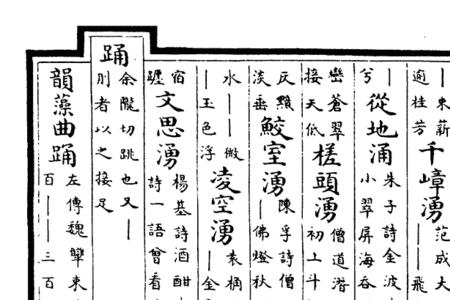 ｜東薪
適桂芳
千嶂湧
范成大
｜飛
｜｜
兮
從地涌
朱子詩金波
小翠屏海吞
巒蒼翠
接天低
槎頭湧
僧道潛
初上斗
淡垂
鮫室湧
陳孚詩僧
｜佛燈秋
水｜｜微
｜玉色浮
凌空湧
袁桷
｜金
宿
文思湧
楊基詩酒酣
詩一語曾看
踊
余隴切跳也又｜
刖者以之接足
韻藻曲踊
左傳魏犨束
百｜｜三百